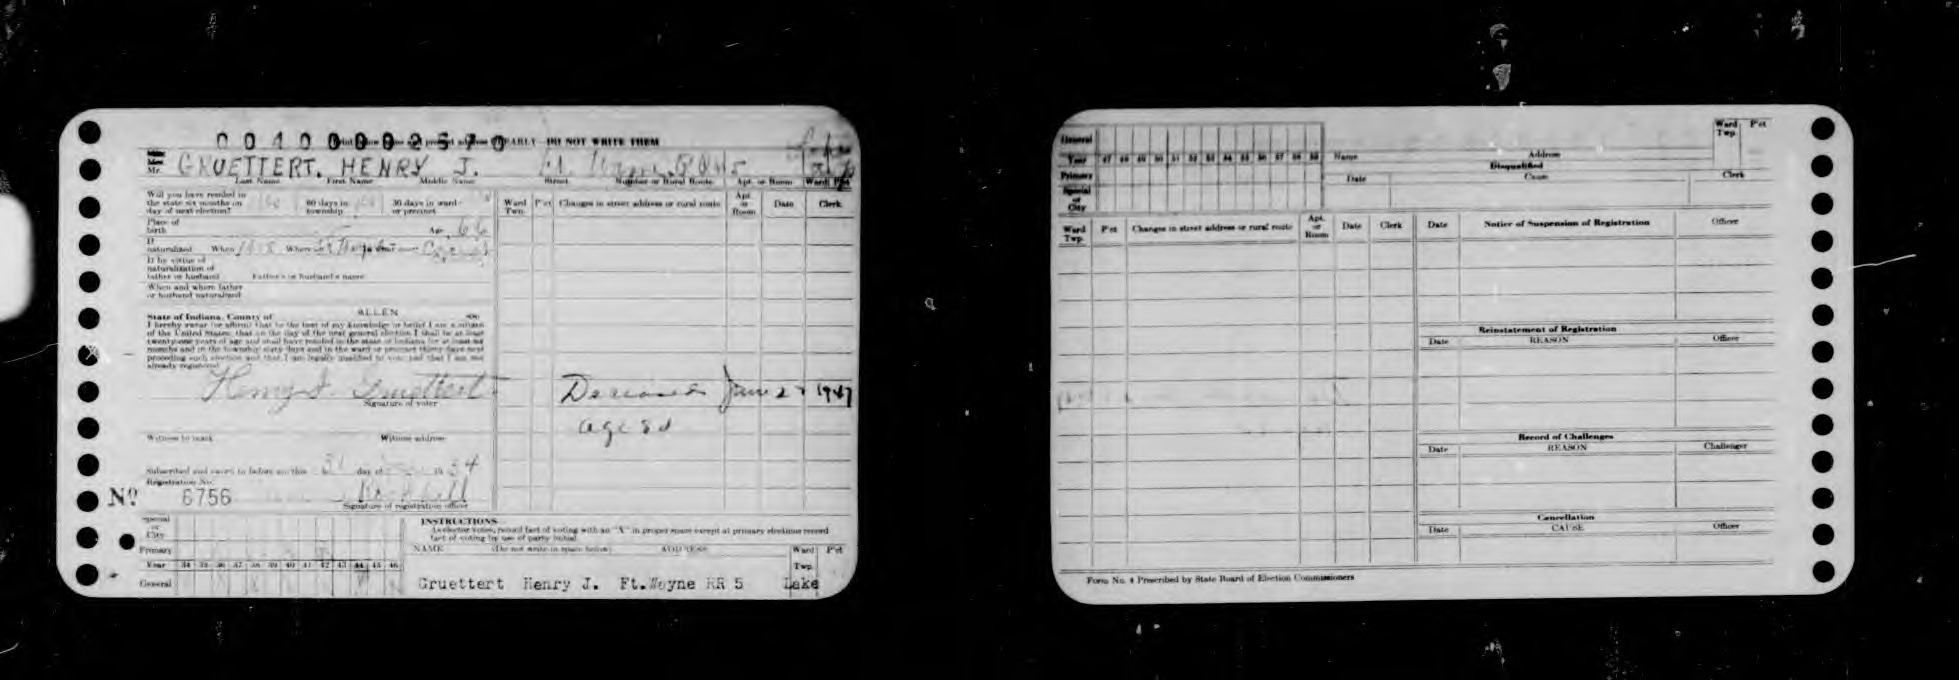 00400002570
Print name and present address CLEARLY—DO NOT WRITE THEM
Mr. GRUETTERT, HENRY J. Ft. Wayne, R R #5
Last Name First Name Middle Name Street Number or Rural Route Apt. or Room Ward Pct
Will you have resided in
the state six months on
day of next election? 60 days in
township 30 days in ward
or precinct
Place of
birth Age 66
If
naturalized When Where
If by virtue of
naturalization of
father or husband Father's or husband's name
When and where father
or husband naturalized
State of Indiana, County of ALLEN ss:
I hereby swear (or affirm) that to the best of my knowledge or belief I am a citizen
of the United States; that on the day of the next general election I shall be at least
twenty-one years of age and shall have resided in the state of Indiana for at least six
months and in the township sixty days and in the ward or precinct thirty days next
preceding such election and that I am legally qualified to vote and that I am not
already registered.
Henry J. Gruettert
Signature of voter
Witness to mark Witness address
Subscribed and sworn to before me this 31 day of 19 34
Registration No.
No 6756
Signature of registration officer
Ward
Twp. P'ct Changes in street address or rural route Apt.
or
Room Date Clerk
Deceased June 27 1947
age 80
Special
or
City
Primary
Year 34 35 36 37 38 39 40 41 42 43 44 45 46
General
INSTRUCTIONS
As elector votes, record fact of voting with an "X" in proper space except at primary elections record
fact of voting by use of party initial.
NAME (Do not write in space below) ADDRESS Ward
Twp. P'ct
Gruettert Henry J. Ft.Wayne RR 5 Lake
General
Year 47 48 49 50 51 52 53 54 55 56 57 58 59
Primary
Special
or
City
Name Address
Ward
Twp. P'ct
Disqualified
Date Cause Clerk
Ward
Twp. P'ct Changes in street address or rural route Apt.
or
Room Date Clerk
Date Notice of Suspension of Registration Officer
Reinstatement of Registration
Date REASON Officer
Record of Challenges
Date REASON Challenger
Cancellation
Date CAUSE Officer
Form No. 4 Prescribed by State Board of Election Commissioners